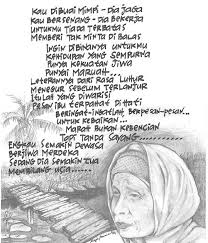 KAU DIBUAI MIMPI - DIA JAGA
KAU BERSENANG - DIA BEKERJA
UNTUKMU TIADA TERBATAS
MEMBERI TAK MINTA DI BALAS
INGIN DIBINANYA UNTUKMU
KEHIDUPAN YANG SEMPURNA
PUNYA KEKUATAN JIWA
PUNYAI MARUAH...
LETERANNYA DARI RASA LUHUR
MENEGUR SEBELUM TERLANJUR
ITULAH YANG DIWARISI
PESAN IBU TERPAHAT DI HATI
BERINGAT-INGATLAH, BERPESAN-PESAN..
UNTUK KEBAIKAN...
MARAH BUKAN KEBENCIAN
TAPI TANDA SAYANG......
ENGKAU SEMAKIN DEWASA
BERJIWA MERDEKA
SEDANG DIA SEMAKIN TUA
MEMBILANG USIA......